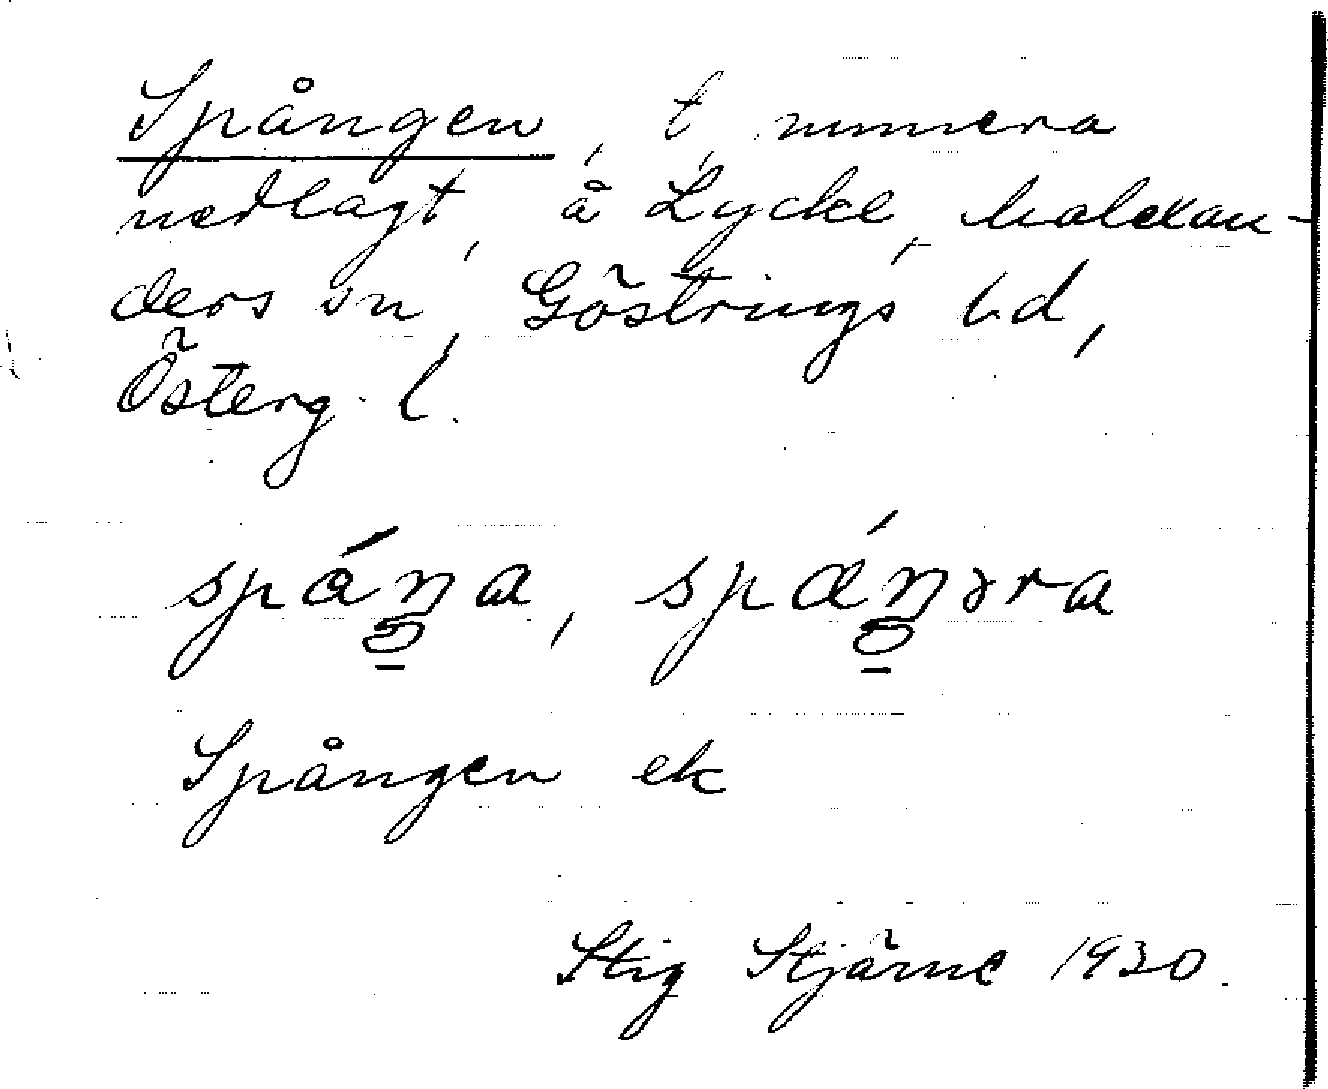 Spången, t, numera
nedlagt, å Lycke, Malexan-
ders sn, Göstrings hd,
Österg. l.
spáŋa, spáŋəra
Spången ek
Stig Stjärne 1930.